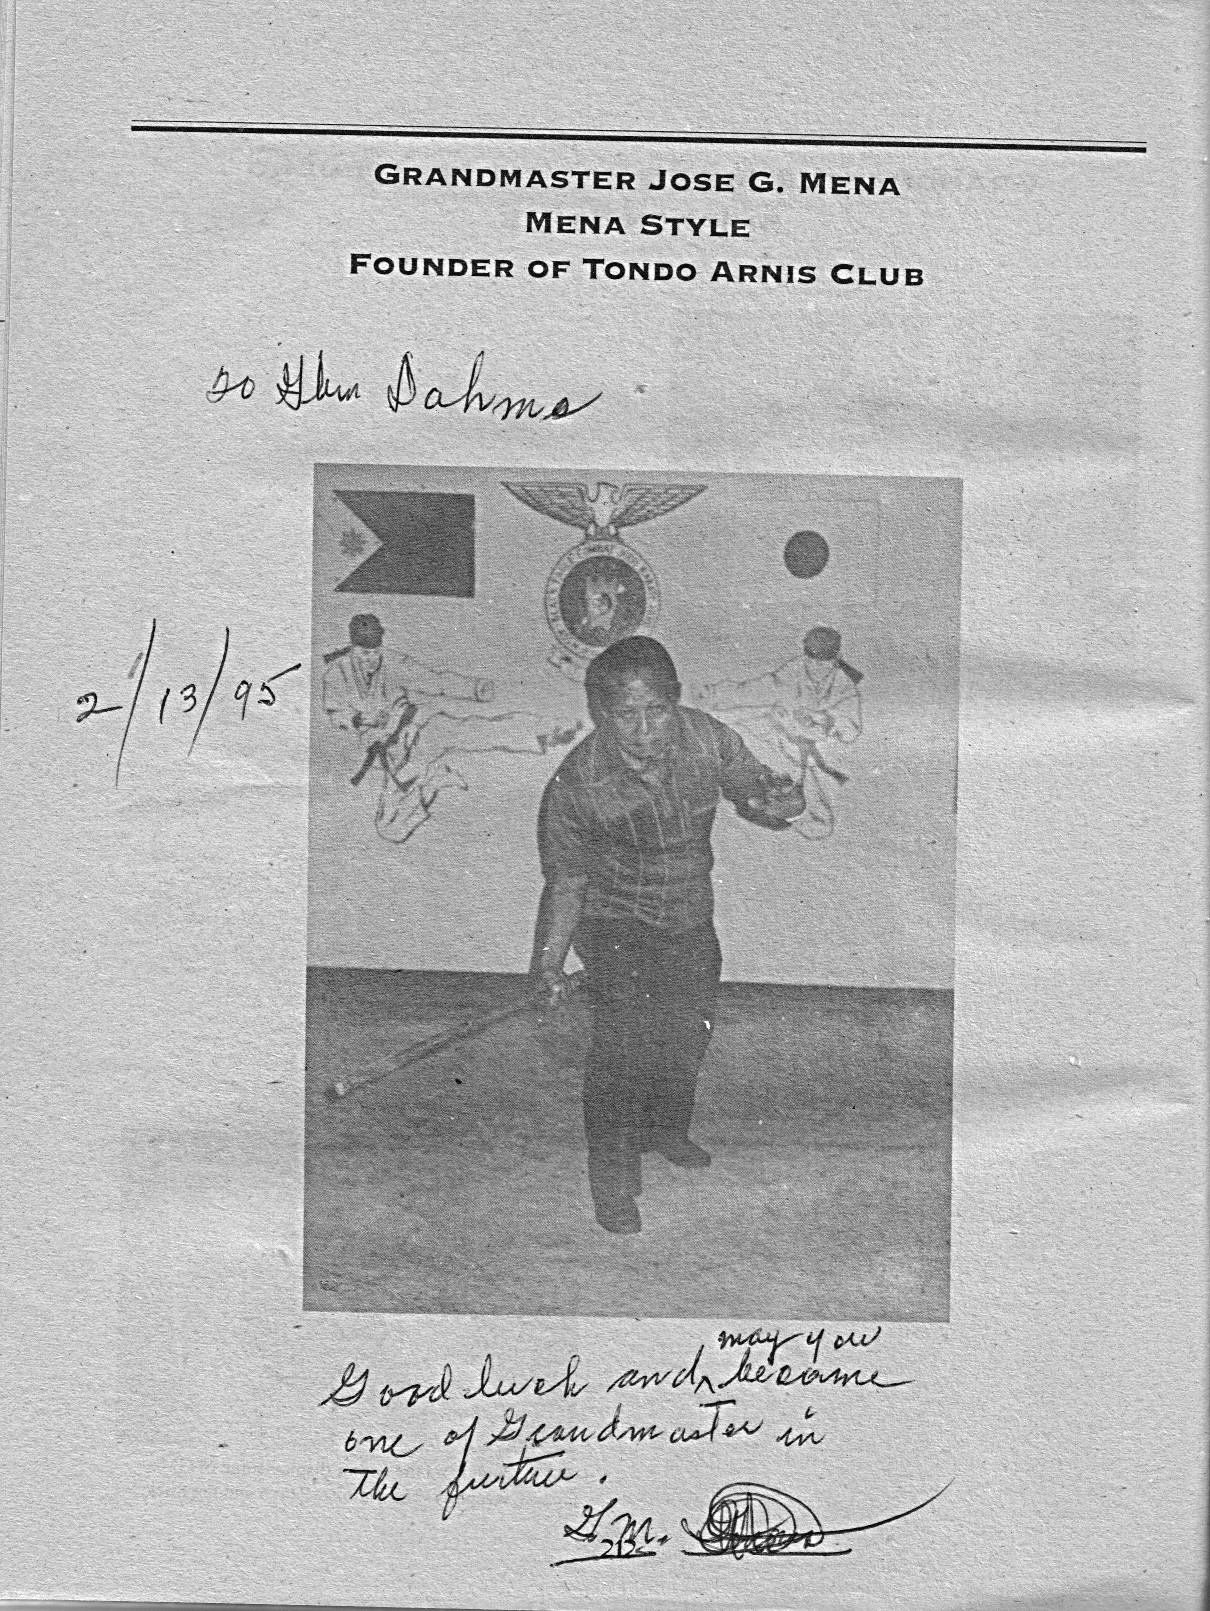 GRANDMASTER JOSE G. MENA
MENA STYLE
FOUNDER OF TONDO ARNIS CLUB
To Glen Dahms
2/13/95
may you
Good luck and become
one of Grandmaster in
The
G.M.